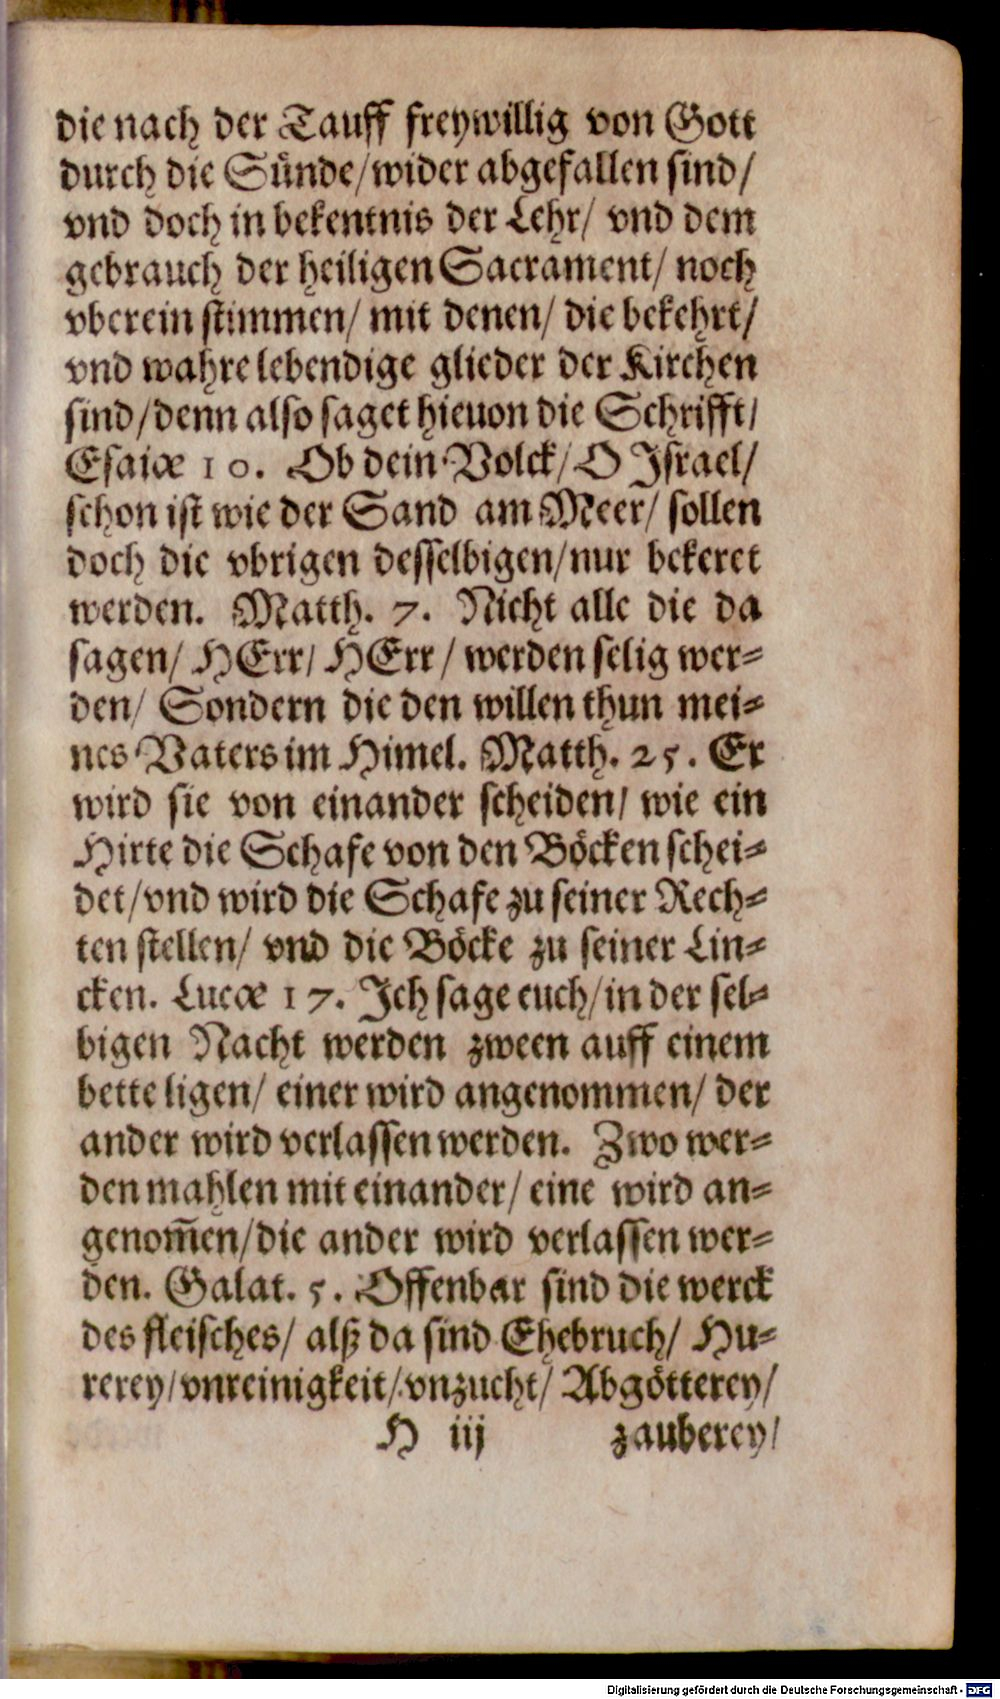 die nach der Tauff freywillig von Gott
durch die Sünde/wider abgefallen sind/
vnd doch in bekentnis der Lehr/ vnd dem
gebrauch der heiligen Sacrament/ noch
vberein stimmen/ mit denen/ die bekehrt/
vnd wahre lebendige glieder der Kirchen
sind/denn also saget hieuon die Schrifft/
Esaiæ 10. Ob dein Volck/O Israel/
schon ist wie der Sand am Meer/ sollen
doch die vbrigen desselbigen/nur bekeret
werden. Matth. 7. Nicht alle die da
sagen/ HErr/ HErr/ werden selig wer-
den/ Sondern die den willen thun mei-
nes Vaters im Himel. Matth. 25. Er
wird sie von einander scheiden/ wie ein
Hirte die Schafe von den Böcken schei-
det/vnd wird die Schafe zu seiner Rech-
ten stellen/ vnd die Böcke zu seiner Lin-
cken. Lucæ 17. Ich sage euch/in der sel-
bigen Nacht werden zween auff einem
bette ligen/ einer wird angenommen/ der
ander wird verlassen werden. Zwo wer-
den mahlen mit einander/ eine wird an-
genom̄en/die ander wird verlassen wer-
den. Galat. 5. Offenbar sind die werck
des fleisches/ alß da sind Ehebruch/ Hu-
rerey/vnreinigkeit/vnzucht/ Abgötterey/
H iij zauberey/
Digitalisierung gefördert durch die Deutsche Forschungsgemeinschaft - DFG